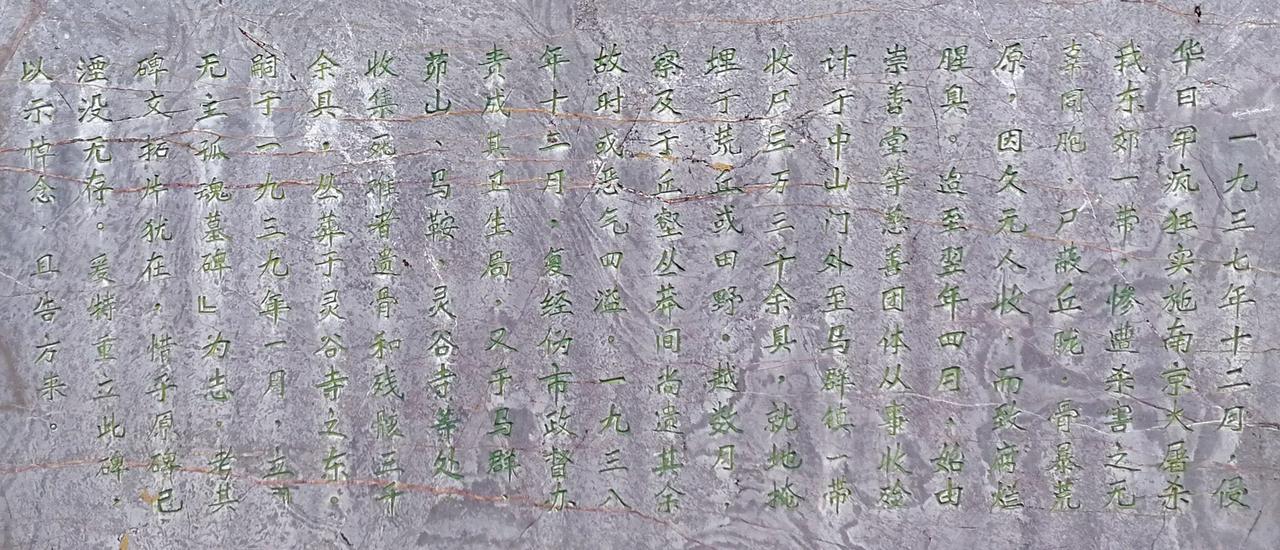 一九三七年十二月，侵
华日军疯狂实施南京大屠杀
我东郊一带，惨遭杀害之无
辜同胞，尸蔽丘陇，骨暴荒
原，因久无人收，而致腐烂
腥臭。迨至翌年四月，始由
崇善堂等慈善团体从事收殓
计于中山门外至马群镇一带
收尸三万三千余具，就地掩
埋于荒丘或田野。越数月，
察及于丘壑丛莽间尚遗其余
故时或恶气四溢。一九三八
年十二月，复经伪市政督办
责成其卫生局，又于马群、
茆山、马鞍、灵谷寺等处
收集死难者遗骨和残骸三千
余具，丛葬于灵谷寺之东。
嗣于一九三九年一月，立
无主孤魂墓碑』为志。老其
碑文拓片犹在，惜乎原碑已
湮没无存。爰特重立此碑，
以示悼念，且告方来。